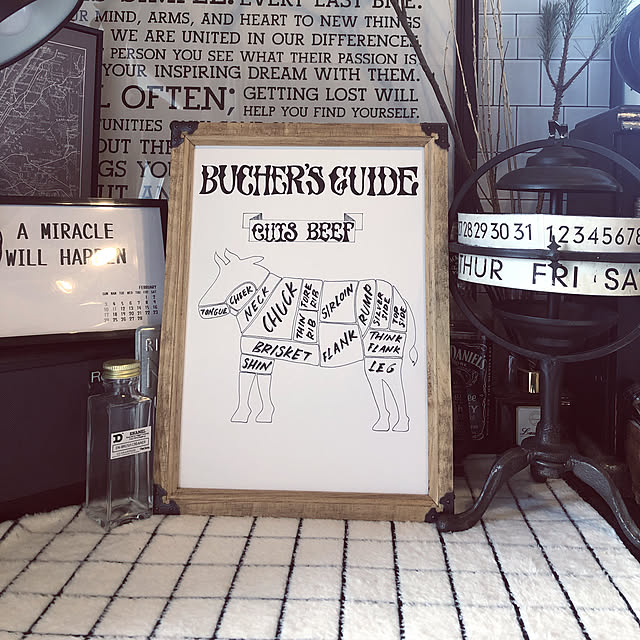 EVERY LAST BITE.
MIND, ARMS, AND HEART TO NEW THINGS
WE ARE UNITED IN OUR DIFFERENCES.
PERSON YOU SEE WHAT THEIR PASSION IS
YOUR INSPIRING DREAM WITH THEM.
OFTEN; GETTING LOST WILL
HELP YOU FIND YOURSELF.
OUT THE
YOU
A MIRACLE
WILL HAPPEN
FEBRUARY
BUCHER'S GUIDE
CUTS BEEF
TONGUE
CHEEK
NECK
CHUCK
THIN RIB
FORE RIB
SIRLOIN
RUMP
SILVER SIDE
TOP SIDE
BRISKET
FLANK
THINK FLANK
SHIN
LEG
27 28 29 30 31 12345678
THUR FRI SA
DANIEL'S